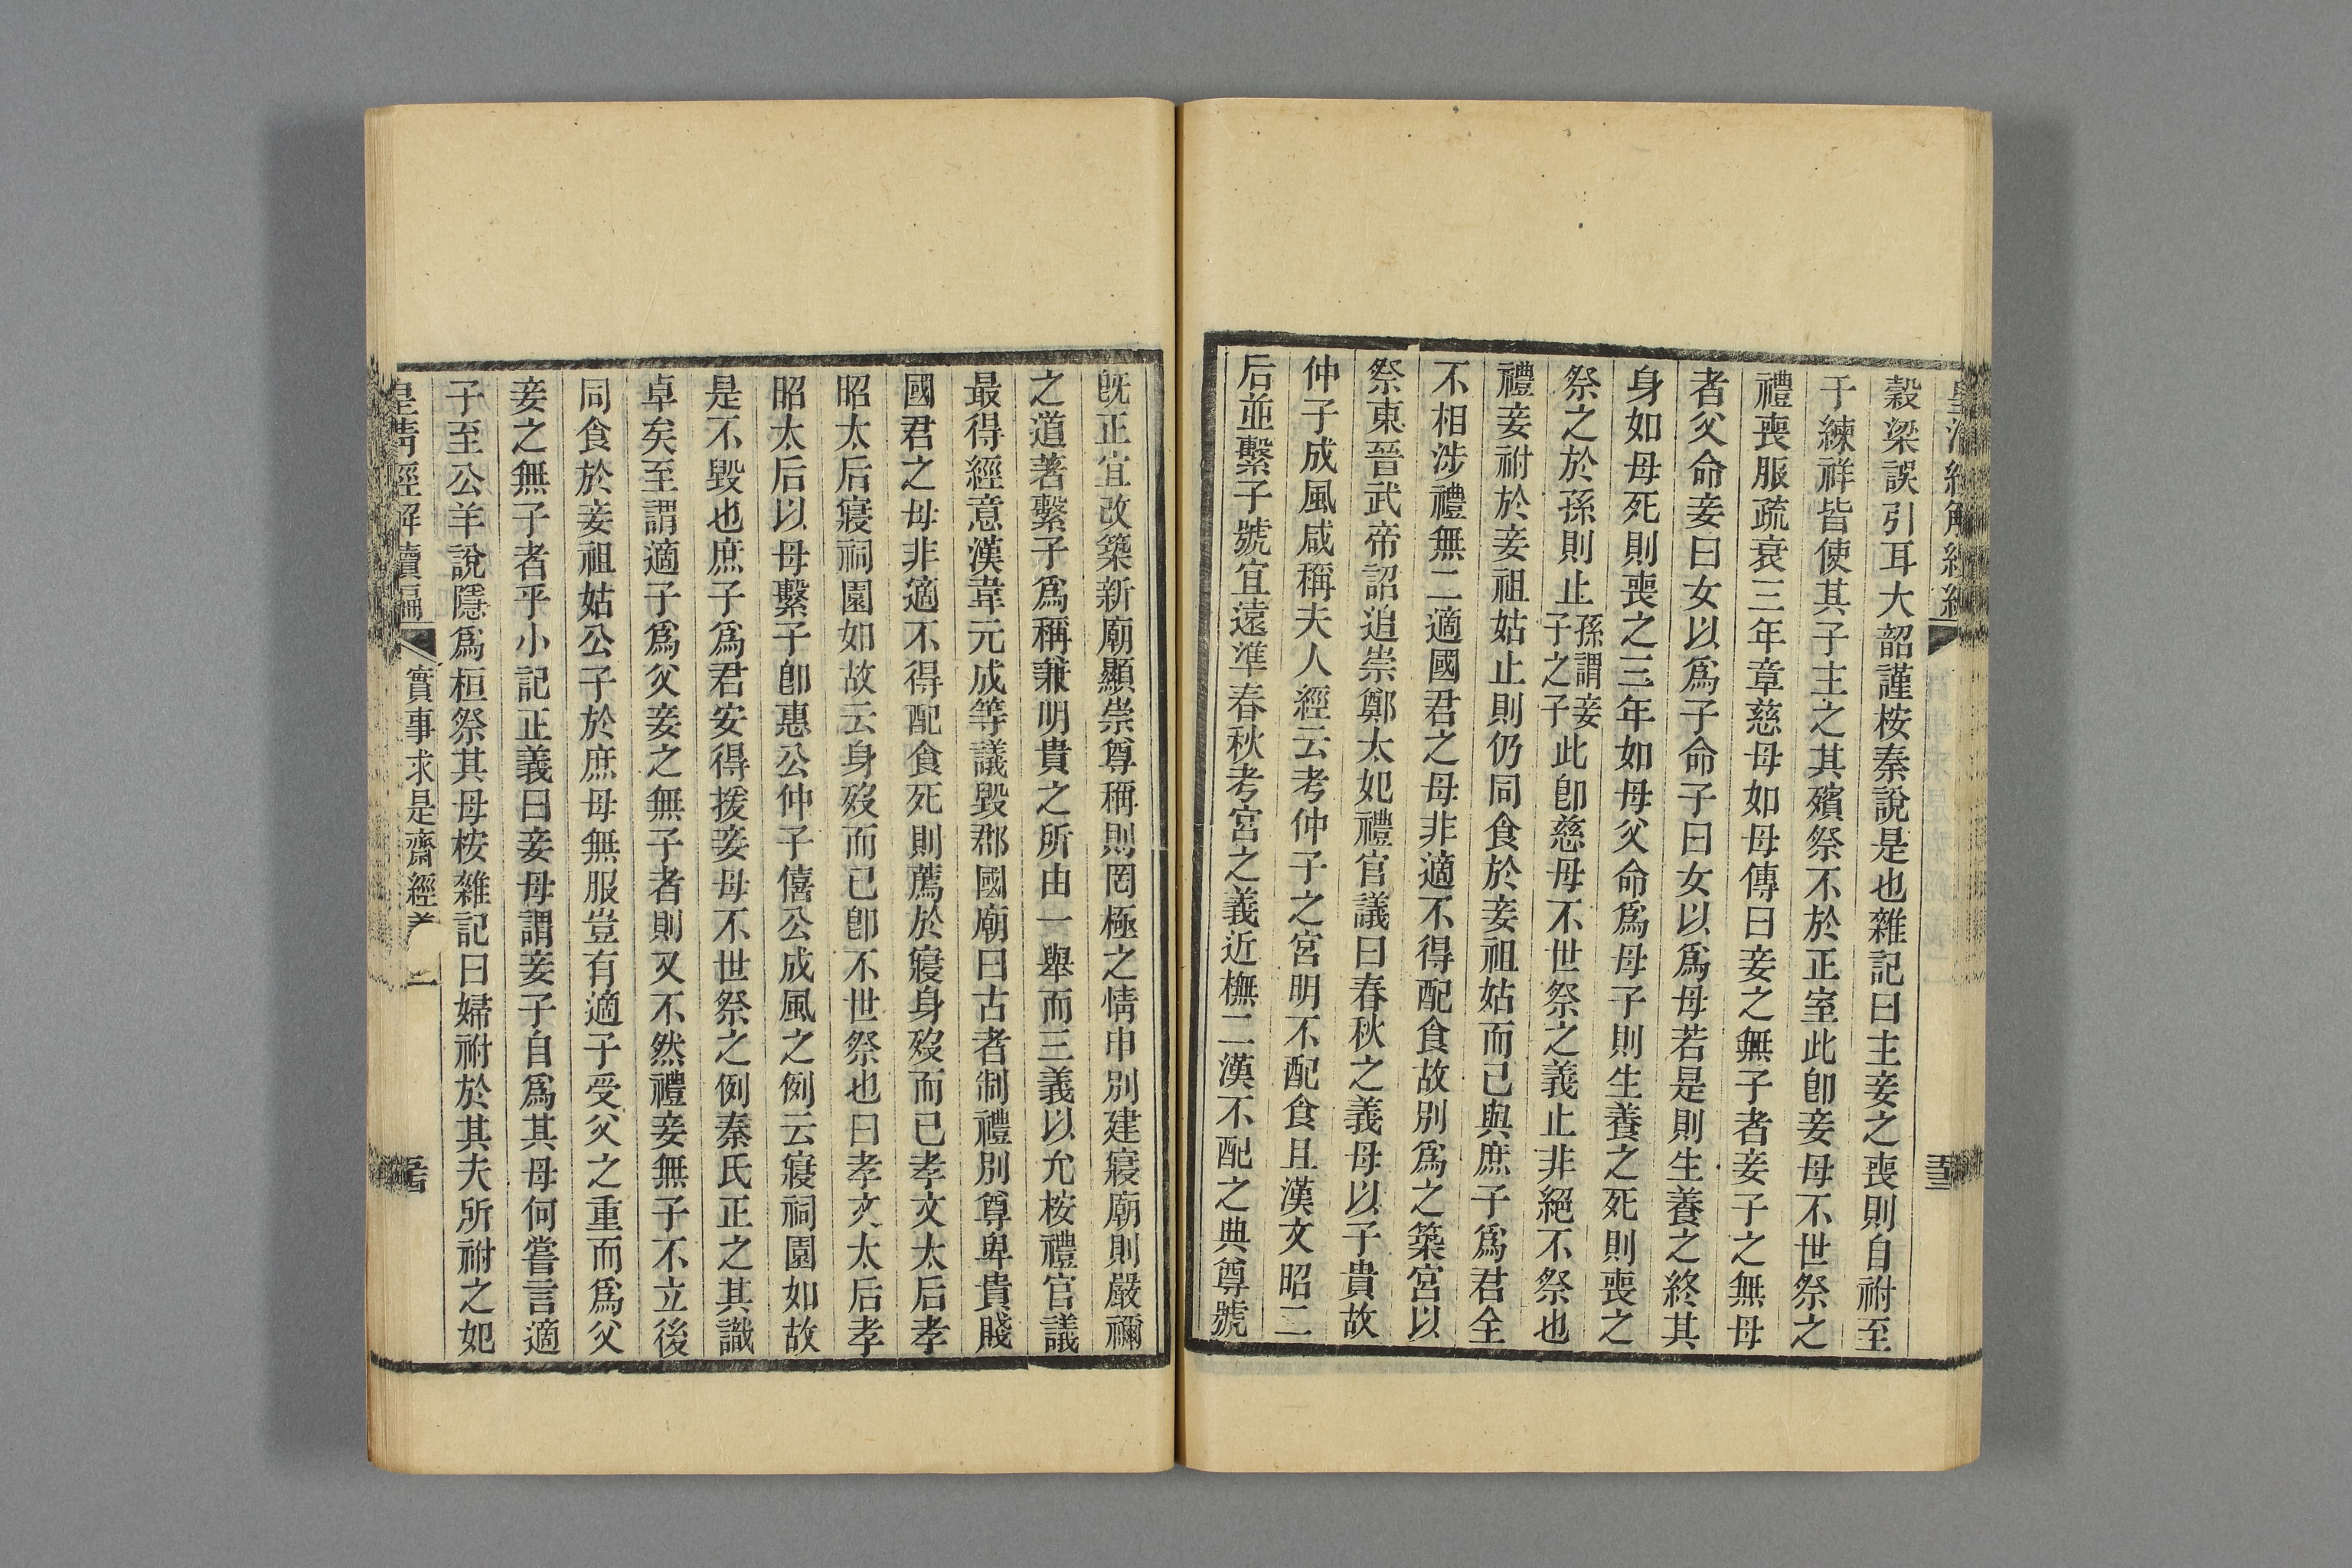 穀梁誤引耳大韶謹桉秦說是也雜記曰主妾之喪則自祔至
于練祥皆使其子主之其殯祭不於正室此卽妾母不世祭之
禮喪服疏衰三年章慈母如母傳曰妾之無子者妾子之無母
者父命妾曰女以爲子命子曰女以爲母若是則生養之終其
身如母死則喪之三年如母父命爲母子則生養之死則喪之
祭之於孫則止孫謂妾子之子此卽慈母不世祭之義止非絕不祭也
禮妾祔於妾祖姑止則仍同食於妾祖姑而已與庶子爲君全
不相涉禮無二適國君之母非適不得配食故別爲之築宮以
祭東晉武帝詔追崇鄭太妃禮官議曰春秋之義母以子貴故
仲子成風咸稱夫人經云考仲子之宮明不配食且漢文昭二
后並繫子號宜遠準春秋考宮之義近橅二漢不配之典尊號
旣正宜改築新廟顯崇尊稱則罔極之情申別建寢廟則嚴禰
之道著繫子爲稱兼明貴之所由一舉而三義以允桉禮官議
最得經意漢韋元成等議毀郡國廟曰古者制禮別尊卑貴賤
國君之母非適不得配食死則薦於寢身歿而已孝文太后孝
昭太后寢祠園如故云身歿而已卽不世祭也曰孝文太后孝
昭太后以母繫子卽惠公仲子僖公成風之例云寢祠園如故
是不毀也庶子爲君安得援妾母不世祭之例秦氏正之其識
卓矣至謂適子爲父妾之無子者則又不然禮妾無子不立後
同食於妾祖姑公子於庶母無服豈有適子受父之重而爲父
妾之無子者乎小記正義曰妾母謂妾子自爲其母何嘗言適
子至公羊說隱爲桓祭其母桉雜記曰婦祔於其夫所祔之妃
皇淸經解續編
實事求是齋經義二